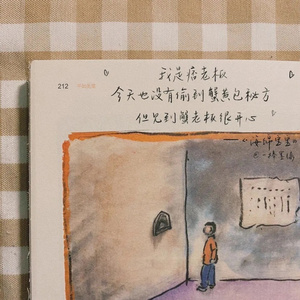 212
我是痞老板
今天也没有偷到蟹黄包秘方
但见到蟹老板很开心
——《海绵宝宝》